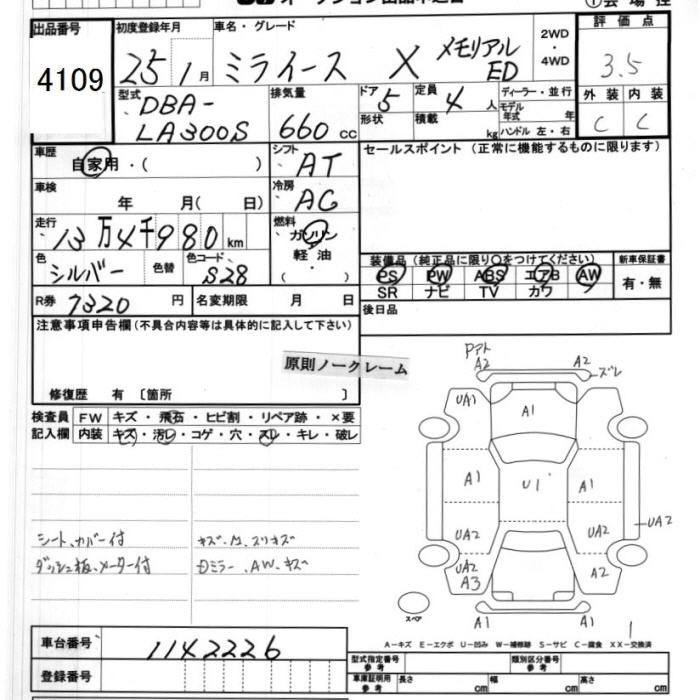 出品番号
4109
初度登録年月
25 1月
車名・グレード
ミライース X メモリアル
ED
2WD
・
4WD
評価点
3.5
型式
DBA-
LA300S
排気量
660 cc
ドア 5
定員 4 人
形状
積載 kg
ディーラー・並行
モデル年式 年
ハンドル 左・右
外装 内装
C C
車歴
自家用・( )
シフト
AT
セールスポイント (正常に機能するものに限ります)
車検
年 月( 日)
冷房
AC
走行
13万4千980km
燃料
ガソリン
軽油
・( )
色
シルバー
色替
色コード
S28
装備品(純正品に限り○をつけてください)
PS PW ABS エアB AW
SR ナビ TV カワ
新車保証書
有・無
R券 7320 円
名変期限 月 日
後日品
注意事項申告欄(不具合内容等は具体的に記入して下さい)
原則ノークレーム
修復歴 有 〔箇所 〕
検査員
記入欄
FW キズ・飛石・ヒビ割・リペア跡・×要
内装 キズ・汚レ・コゲ・穴・スレ・キレ・破レ
シート、カバー付
ダッシュ板、メーター付
Dミラー、AW、キズ
Pアト
A2
A2
ズレ
UA1
A1
A1
A1
U1
A1
UA2
UA2
UA2
UA2
A3
A2
A1
A1
スペア
A-キズ E-エクボ U-凹み W-補修跡 S-サビ C-腐食 XX-交換済
車台番号
1142226
登録番号
型式指定番号
参考
類別区分番号
参考
車庫証明用
参考
長さ cm
幅 cm
高さ cm